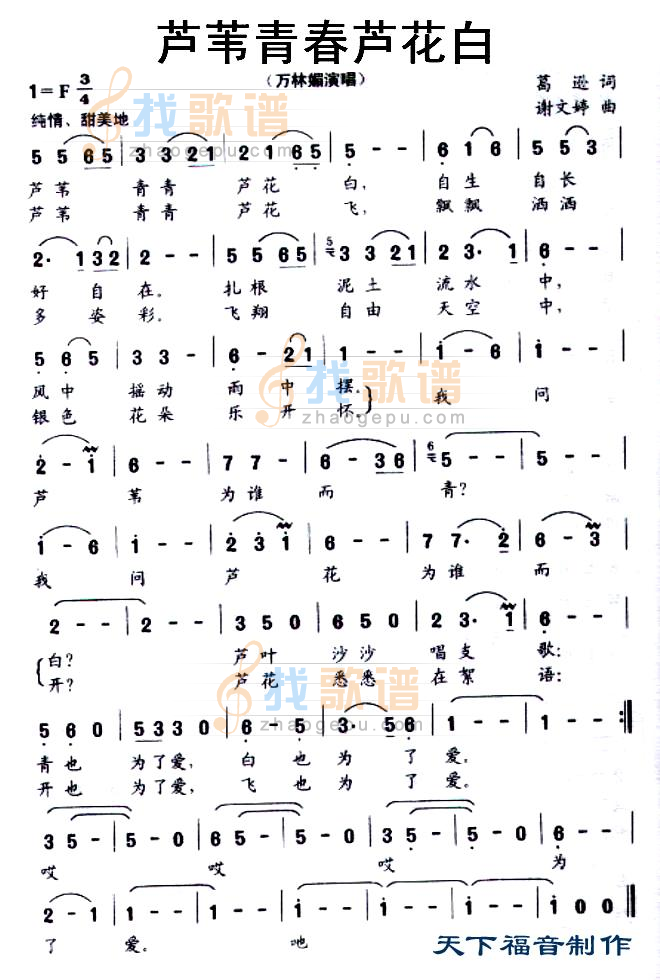 芦苇青春芦花白
(万林媚演唱)
1=F 3/4
葛逊 词
纯情、甜美地
谢文婷 曲
找歌谱
zhaogepu.com
5 5 6 5 | 3 3 2 1 | 2 1 6 5 | 5 - - | 6 1 6 | 5 5 3 |
芦苇 青青 芦花 白, 自生 自长
芦苇 青青 芦花 飞, 飘飘 洒洒
2· 1 3 2 | 2 - - | 5 5 6 5 | 5 3 3 2 1 | 2 3· 1 | 6 - - |
好 自在。 扎根 泥土 流水 中,
多 姿彩。 飞翔 自由 天空 中,
5 6 5 | 3 3 - | 6 - 2 1 | 1 - - | 1 - 6 | 1 - - |
风中 摇动 雨中 摆。} 我 问
银色 花朵 乐开 怀。
找歌谱
zhaogepu.com
2 - 1 | 6 - - | 7 7 - | 6 - 3 6 | 6 5 - - | 5 - - |
芦 苇 为谁 而 青?
1 - 6 | 1 - - | 2 3 1 | 6 - - | 7 7· 2 | 6 - 3 |
我 问 芦 花 为谁 而
2 - - | 2 - - | 3 5 0 | 6 5 0 | 2 3· 1 | 6 - - |
{白? 芦叶 沙沙 唱支 歌:
开? 芦花 悉悉 在絮 语:
找歌谱
zhaogepu.com
5 6 0 | 5 3 3 0 | 6 - 5 | 3· 5 6 | 1 - - | 1 - - :|
青也 为了爱, 白也 为 了 爱。
开也 为了爱, 飞也 为 了 爱。
3 5 - | 5 - - | 5 - 0 | 6 5 - | 5 - 0 | 3 5 - | 5 - 0 | 6 - - |
哎 哎 哎 为
2 - 1 | 1 - - | 1 - - | 1 - - | 1 - - | 1 - - | 1 - 0 ‖
了 爱。 吔
天下福音制作